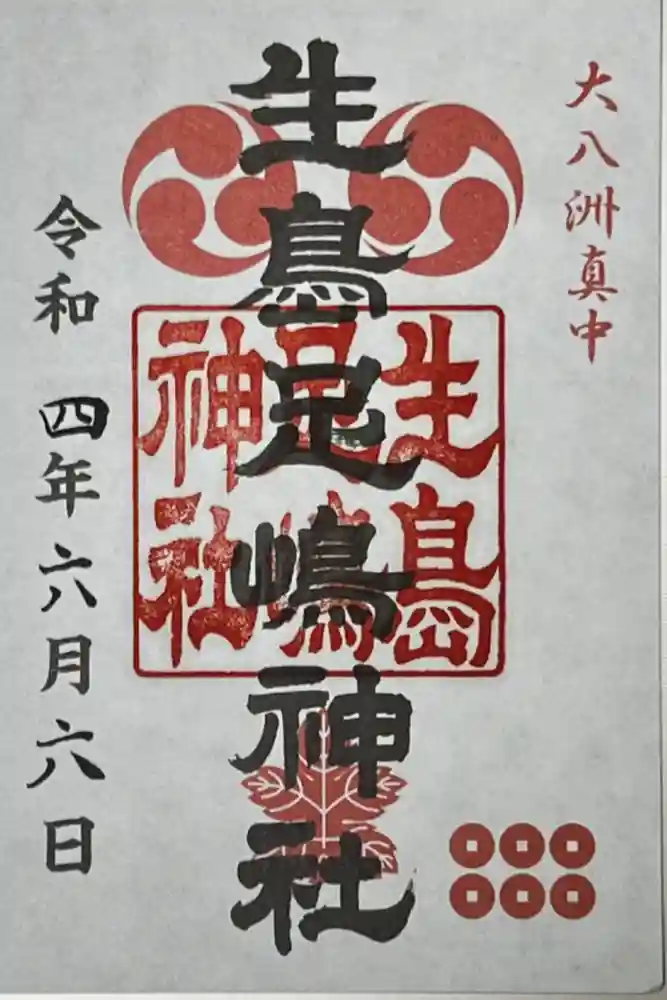 大八洲真中
生島足嶋神社
生島
足嶋
神社
令和 四年六月六日